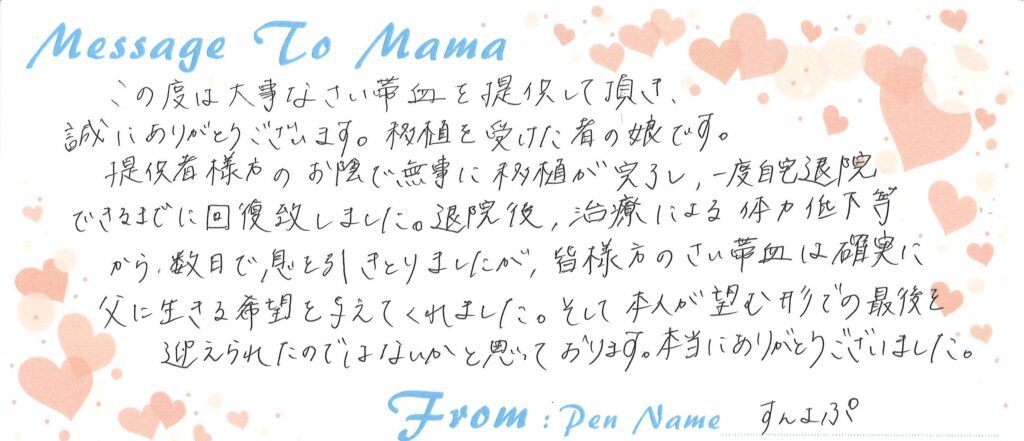 Message To Mama
この度は大事なさい帯血を提供して頂き、
誠にありがとうございます。移植を受けた者の娘です。
提供者様方のお陰で無事に移植が完了し、一度自宅退院
できるまでに回復致しました。退院後、治療による体力低下等
から、数日で息を引きとりましたが、皆様方のさい帯血は確実に
父に生きる希望を与えてくれました。そして本人が望む形での最後を
迎えられたのではないかと思っております。本当にありがとうございました。
From : Pen Name すんよぷ